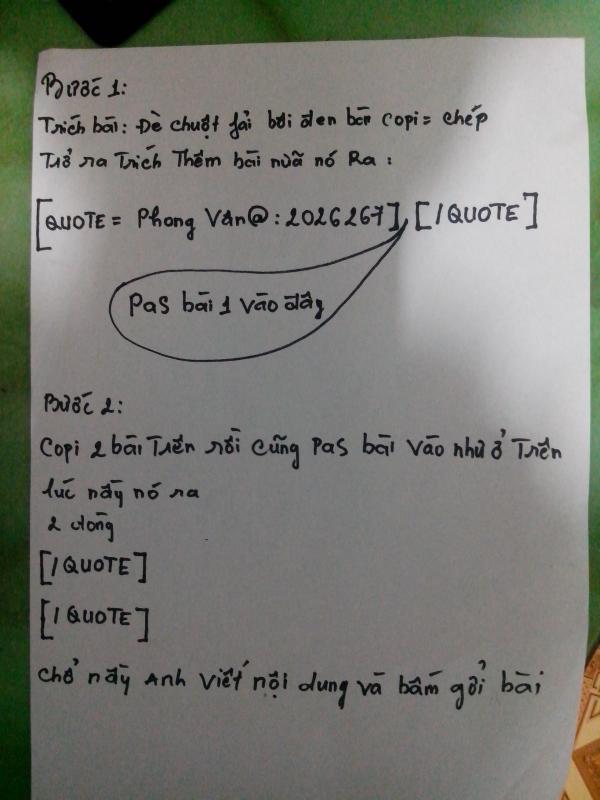 Bước 1:
Trích bài: Đè chuột fải bôi đen bài Copi = chép
Trở ra Trích Thêm bài nữa nó Ra:
[QUOTE = Phong Vân@:2026267] [/QUOTE]
Pas bài 1 vào đây
Bước 2:
Copi 2 bài Trên rồi cũng Pas bài vào như ở Trên
lúc nầy nó ra
2 dòng
[/QUOTE]
[/QUOTE]
chổ nầy Anh viết nội dung và bấm gởi bài